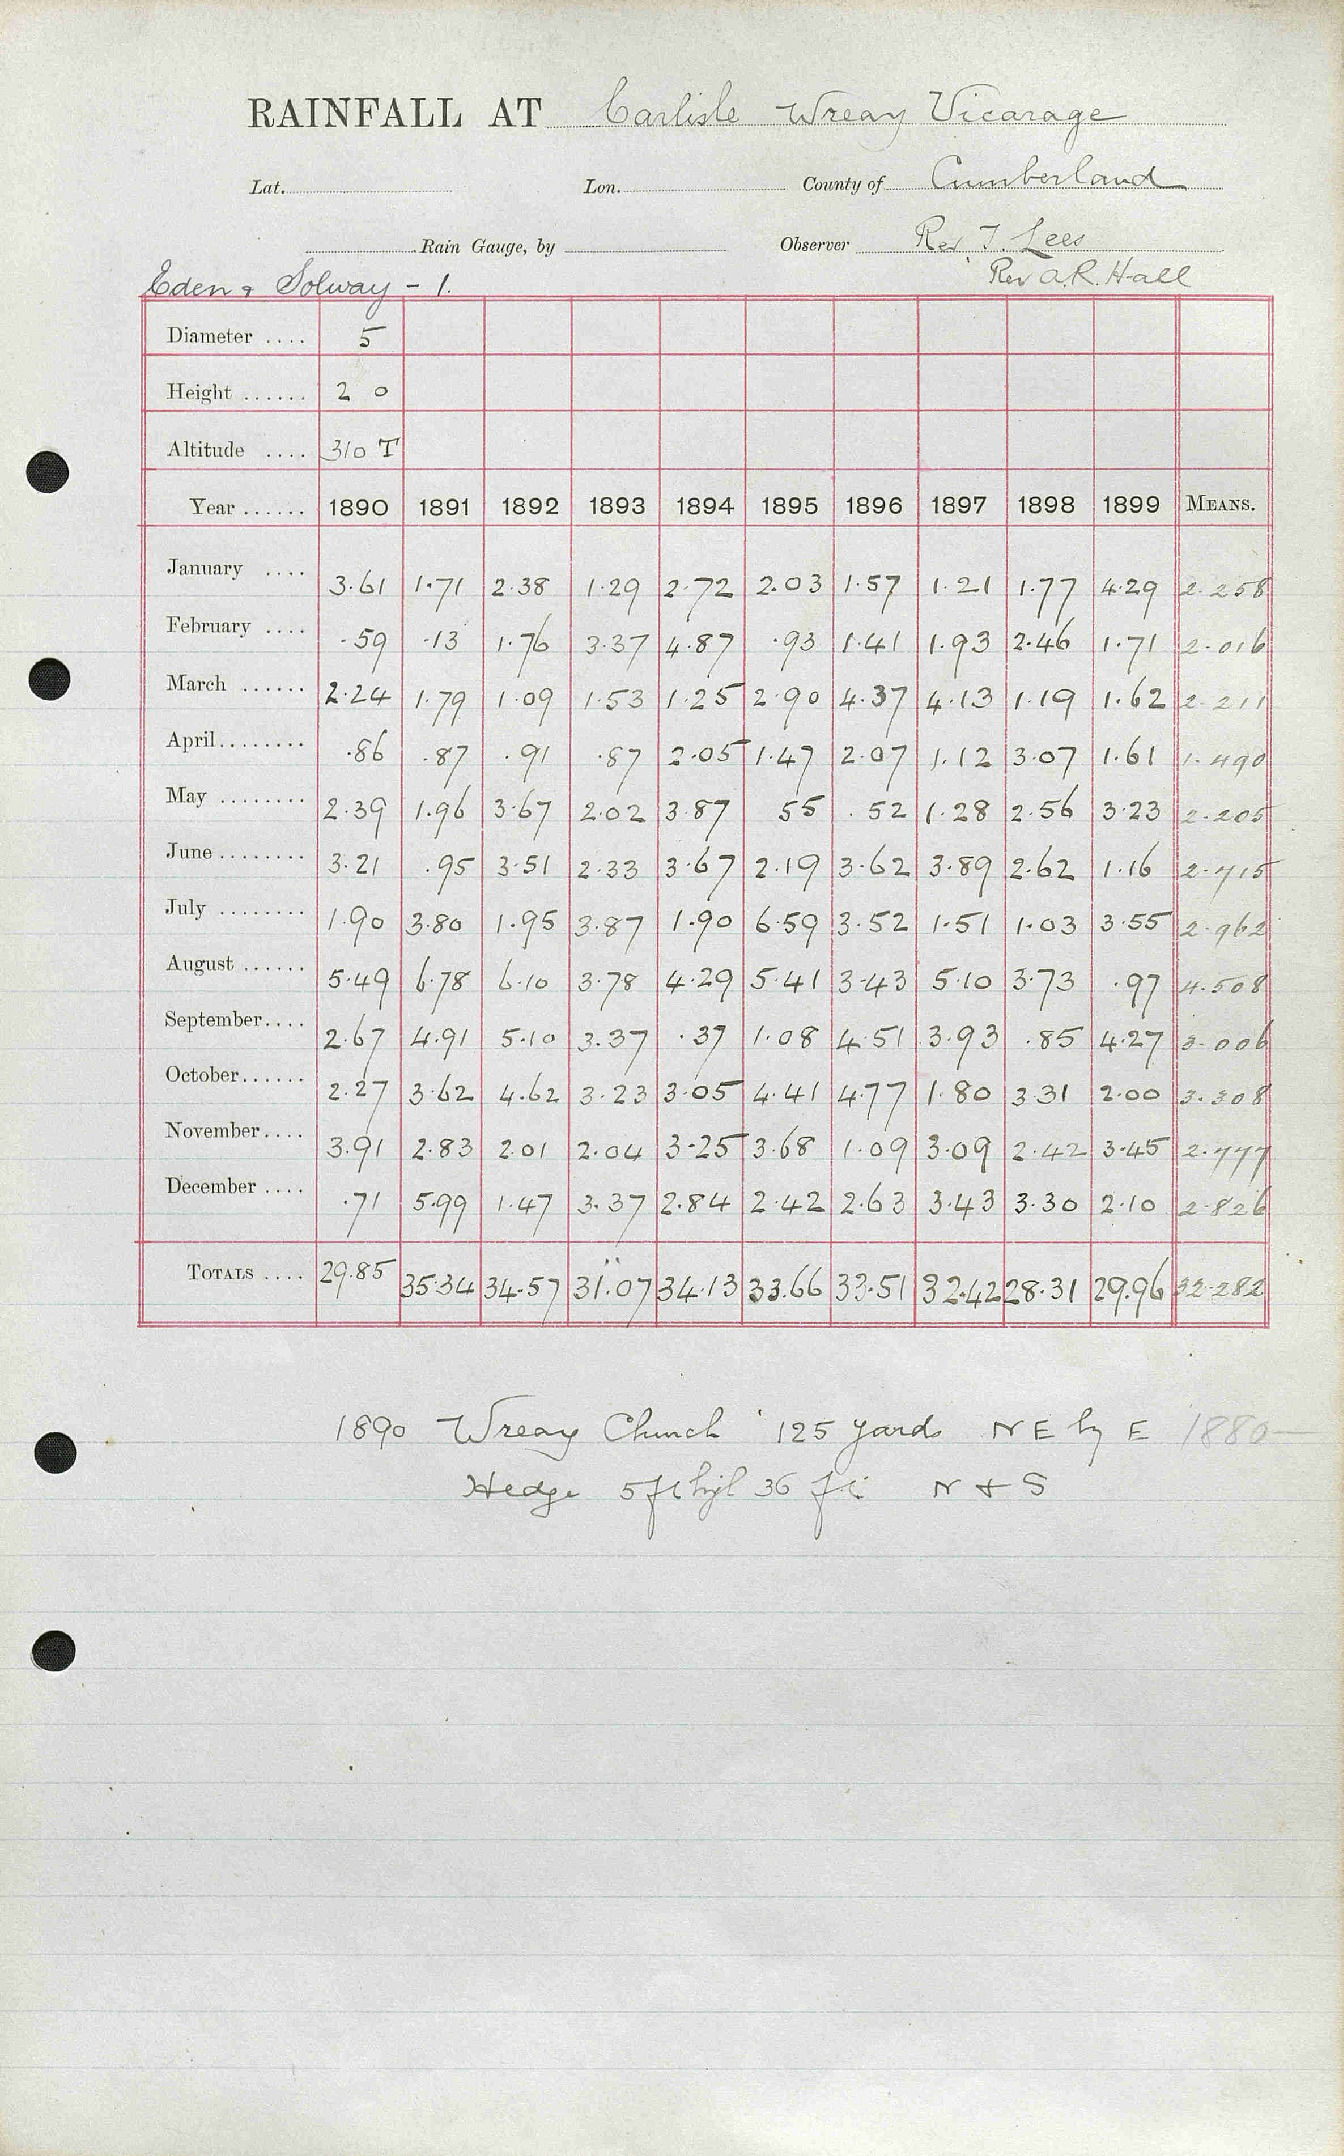 RAINFALL AT Carlisle Wreay Vicarage
Lat. Lon. County of Cumberland
Rain Gauge, by Observer Rev T. Lees
Eden & Solway - 1. Rev A.R. Hall
Diameter .... 5
Height ...... 2 0
Altitude .... 310 T
Year ...... 1890 1891 1892 1893 1894 1895 1896 1897 1898 1899 MEANS.
January .... 3.61 1.71 2.38 1.29 2.72 2.03 1.57 1.21 1.77 4.29 2.258
February .... .59 .13 1.76 3.37 4.87 .93 1.41 1.93 2.46 1.71 2.016
March ...... 2.24 1.79 1.09 1.53 1.25 2.90 4.37 4.13 1.19 1.62 2.211
April........ .86 .87 .91 .87 2.05 1.47 2.07 1.12 3.07 1.61 1.490
May ........ 2.39 1.96 3.67 2.02 3.87 55 .52 1.28 2.56 3.23 2.205
June........ 3.21 .95 3.51 2.33 3.67 2.19 3.62 3.89 2.62 1.16 2.715
July ........ 1.90 3.80 1.95 3.87 1.90 6.59 3.52 1.51 1.03 3.55 2.962
August ...... 5.49 6.78 6.10 3.78 4.29 5.41 3.43 5.10 3.73 .97 4.508
September.... 2.67 4.91 5.10 3.37 .37 1.08 4.51 3.93 .85 4.27 3.006
October...... 2.27 3.62 4.62 3.23 3.05 4.41 4.77 1.80 3.31 2.00 3.308
November.... 3.91 2.83 2.01 2.04 3.25 3.68 1.09 3.09 2.42 3.45 2.777
December .... .71 5.99 1.47 3.37 2.84 2.42 2.63 3.43 3.30 2.10 2.826
TOTALS .... 29.85 35.34 34.57 31.07 34.13 33.66 33.51 32.42 28.31 29.96 32.282
1890 Wreay Church 125 yards N E by E 1880—
Hedge 5 ft high 36 ft N & S